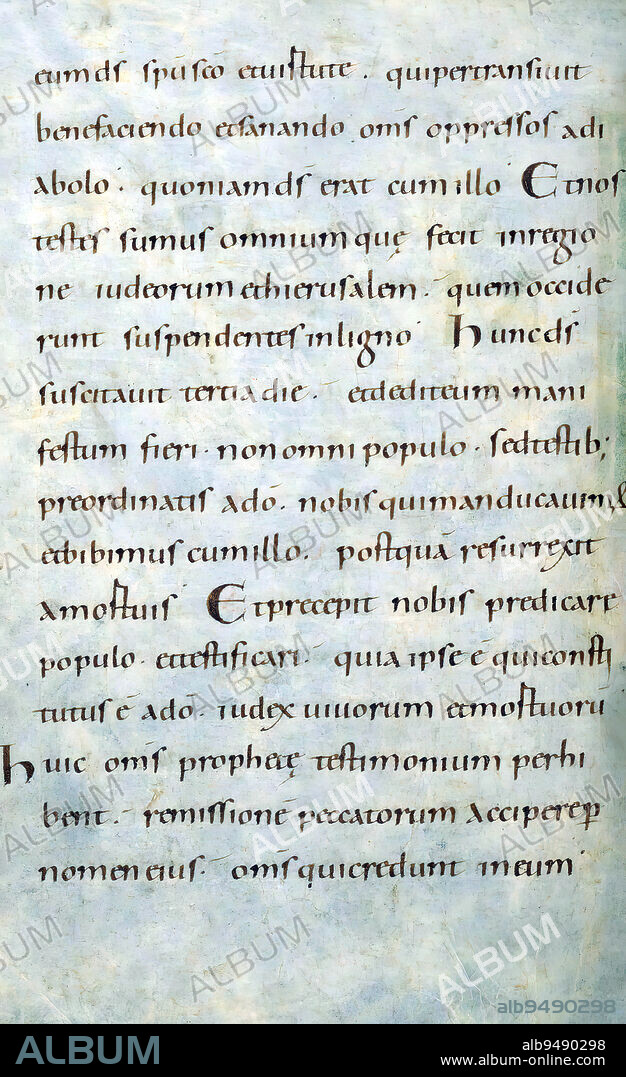 eum d̄s sp̄u sc̄o et uirtute · qui pertransiuit
benefaciendo et sanando om̄s oppressos a di
abolo · quoniam d̄s erat cum illo Et nos
testes sumus omnium quę fecit in regio
ne iudeorum et hierusalem · quem occide
runt suspendentes in ligno Hunc d̄s
suscitauit tertia die · et dedit eum mani
festum fieri · non omni populo · sed testib;
preordinatis a dō · nobis qui manducauim;
et bibimus cum illo · postquā resurrexit
a mortuis Et precepit nobis predicare
populo · et testificari · quia ipse ē qui consti
tutus ē a dō · iudex uiuorum et mortuorū
Huic om̄s prophetę testimonium perhi
bent · remissionē peccatorum accipere ꝑ
nomen eius · om̄s qui credunt in eum
ALBUM
alb9490298
ALBUM
alb9490298
www.album-online.com